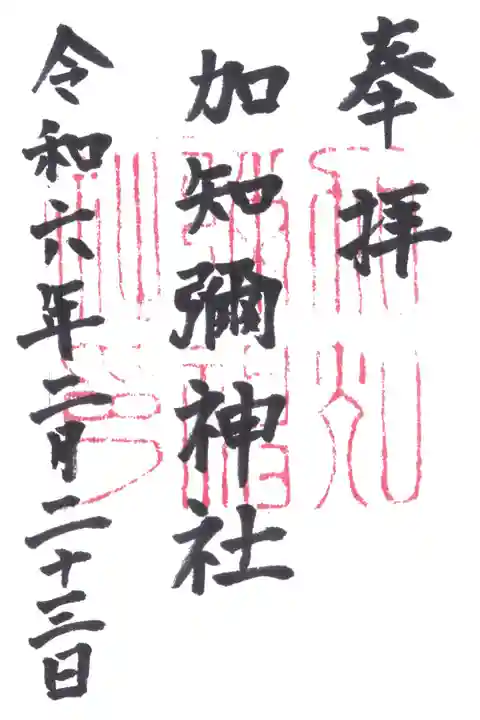 奉拝
加知彌神社
令和六年二月二十三日